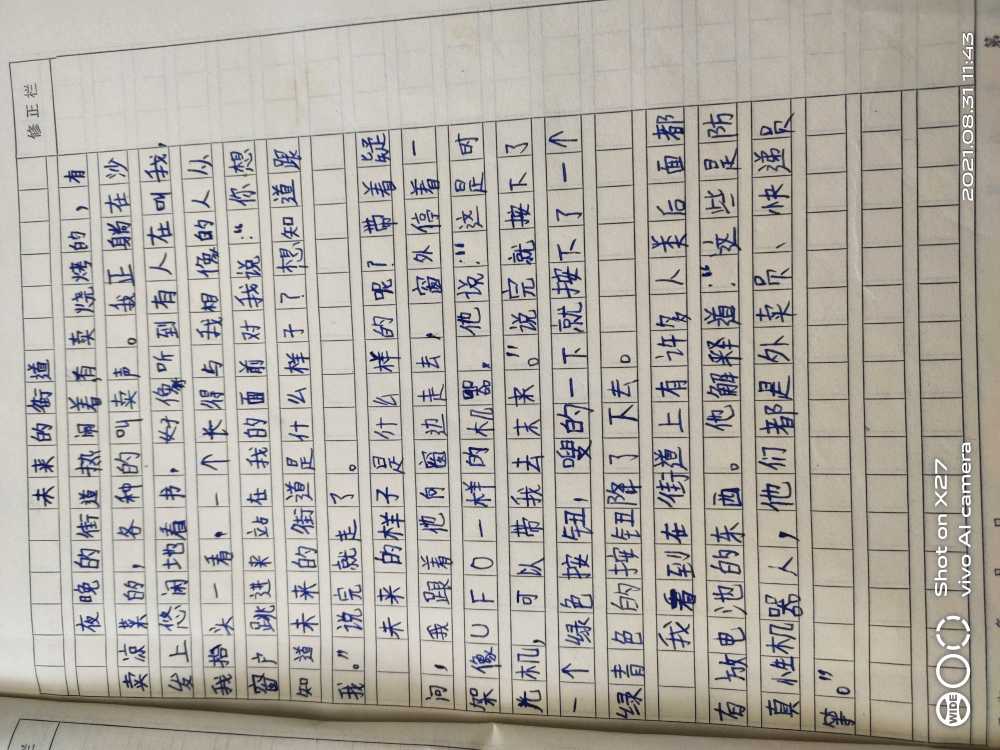 修正栏
未来的街道
夜晚的街道热闹着,有卖烧烤的,有
卖凉菜的,各种的叫卖声。我正躺在沙
发上悠闲地看书,好像听到有人在叫我,
我抬头一看,一个长得与我相像的人从
窗户跳进来站在我的面前对我说:“你想
知道未来的街道是什么样子?想知道跟
我。”说完就走了。
未来的样子是什么样的呢?带着疑
问,我跟着他向窗边走去,窗外停着一
架像UFO一样的机器。他说:“这是时
光机,可以带我去未来。”说完就按下了
一个绿色按钮,嗖的一下就按下了一个
绿青色的按钮降了下去。
我看到在街道上有许多人类后面都
有放电池的东西。他解释道:“这些是防
真性机器人,他们都是外卖员、快递员
等。”
Shot on X27
vivo AI camera
2021.08.31 11:43
WIDE